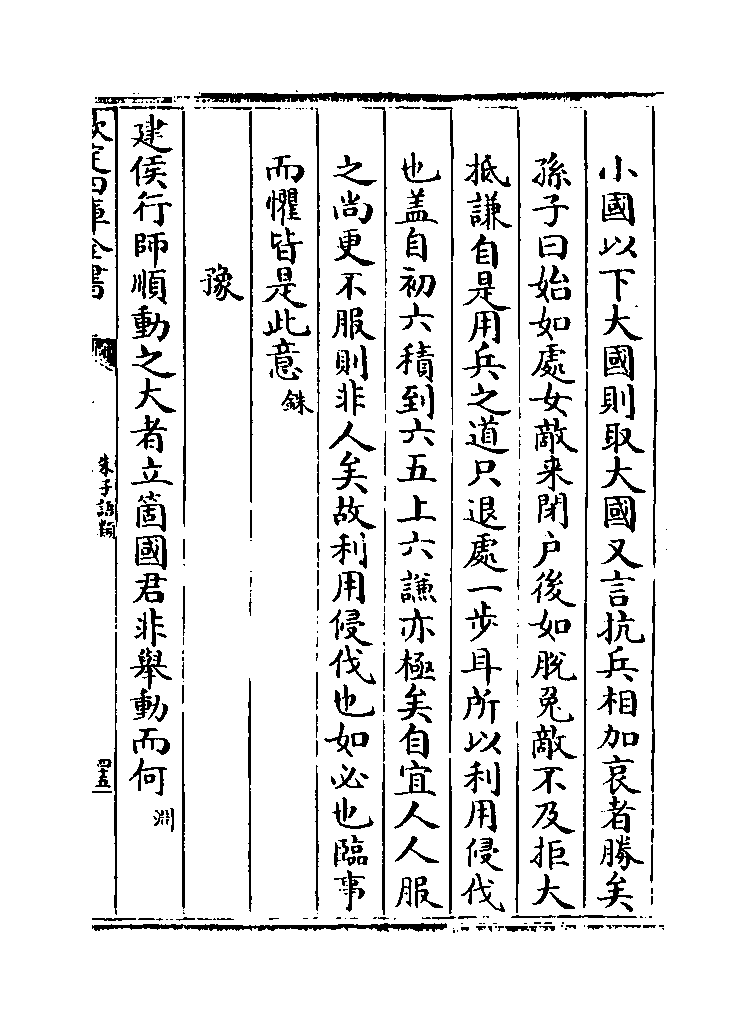 小國以下大國則取大國又言抗兵相加哀者勝矣
孫子曰始如處女敵来閉户後如脱兔敵不及拒大
抵謙自是用兵之道只退處一步耳所以利用侵伐
也盖自初六積到六五上六謙亦極矣自宜人人服
之尚更不服則非人矣故利用侵伐也如必也臨事
而懼皆是此意銖
豫
建侯行師順動之大者立箇國君非舉動而何淵
欽定四庫全書
朱子語類
四五